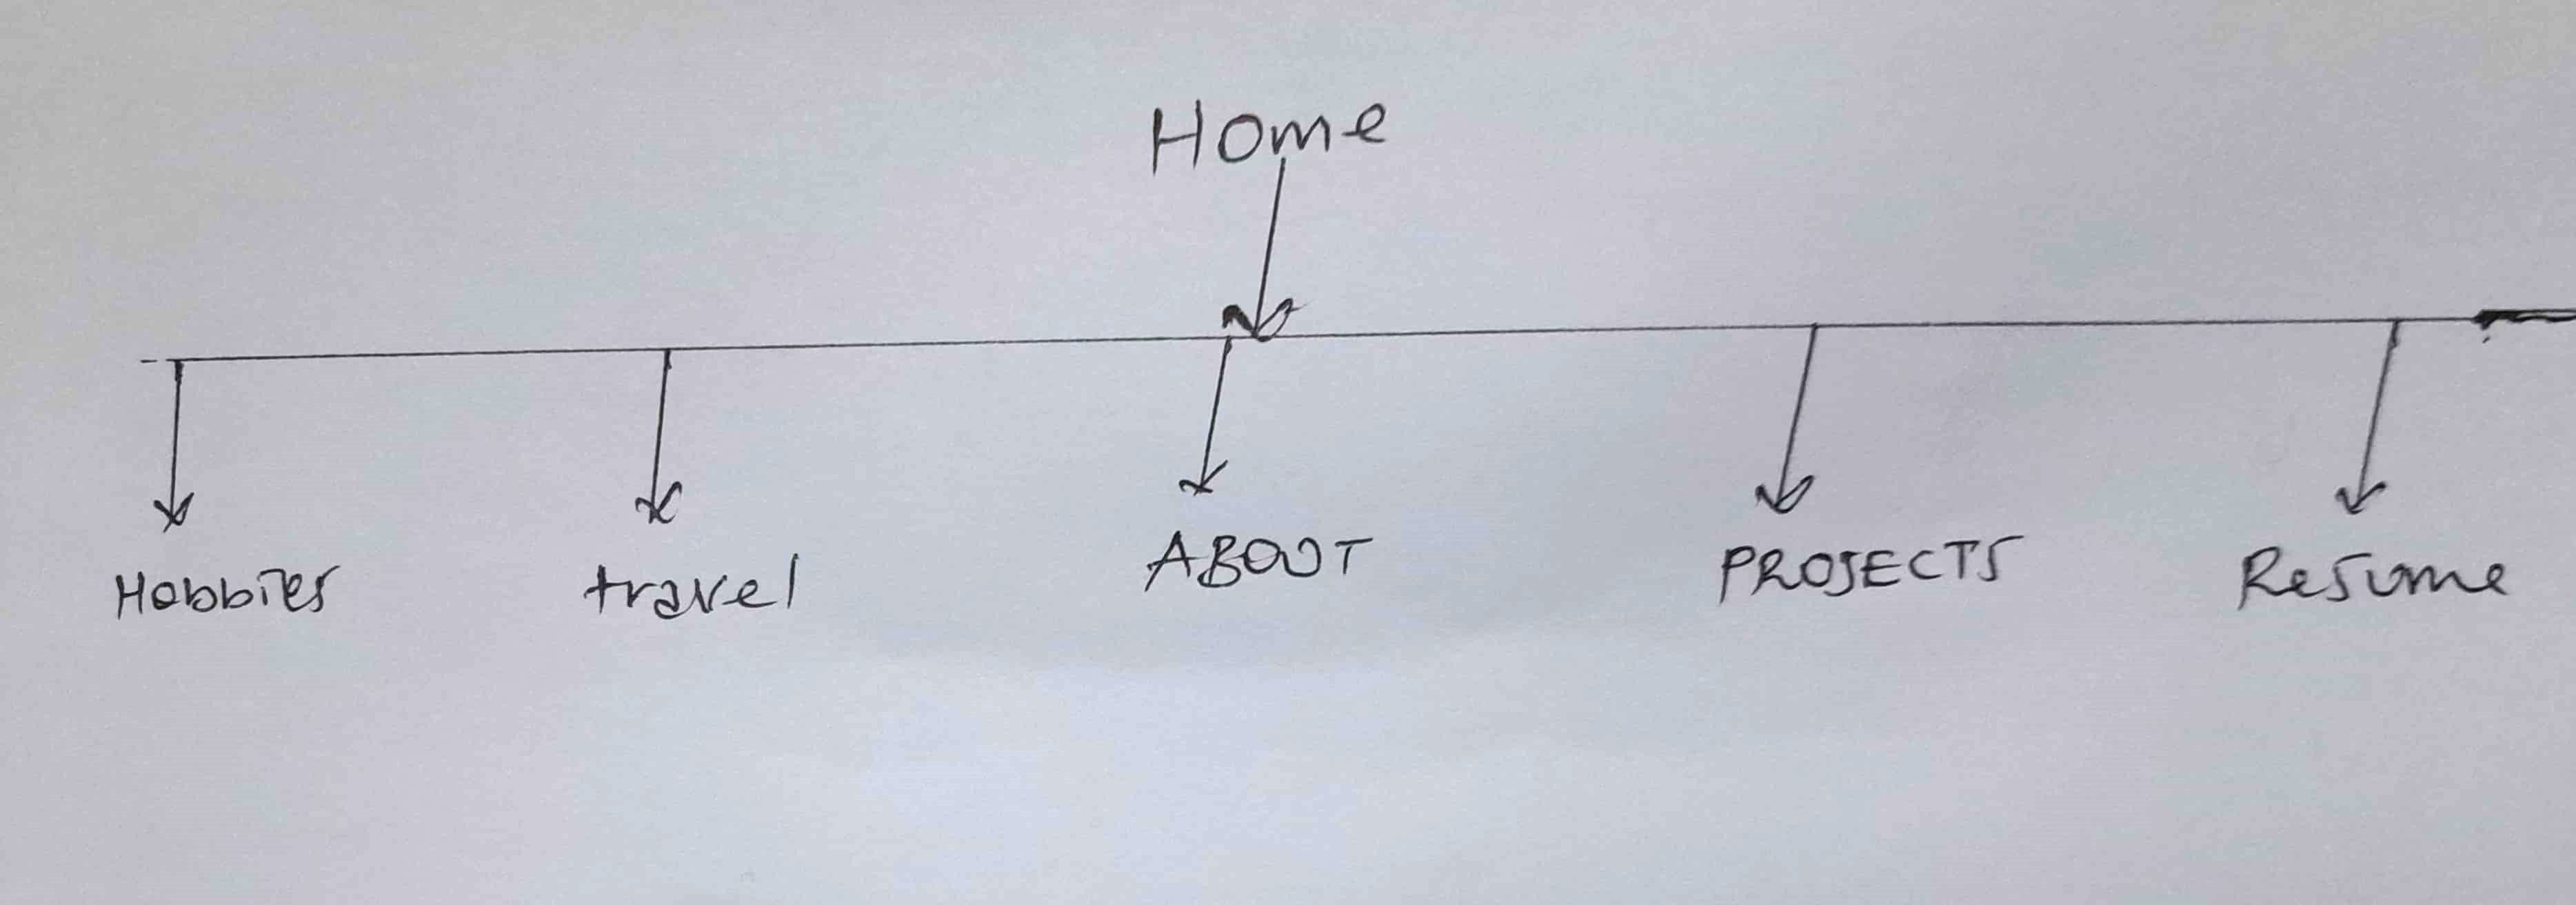 Home
Hobbies travel ABOUT PROJECTS Resume